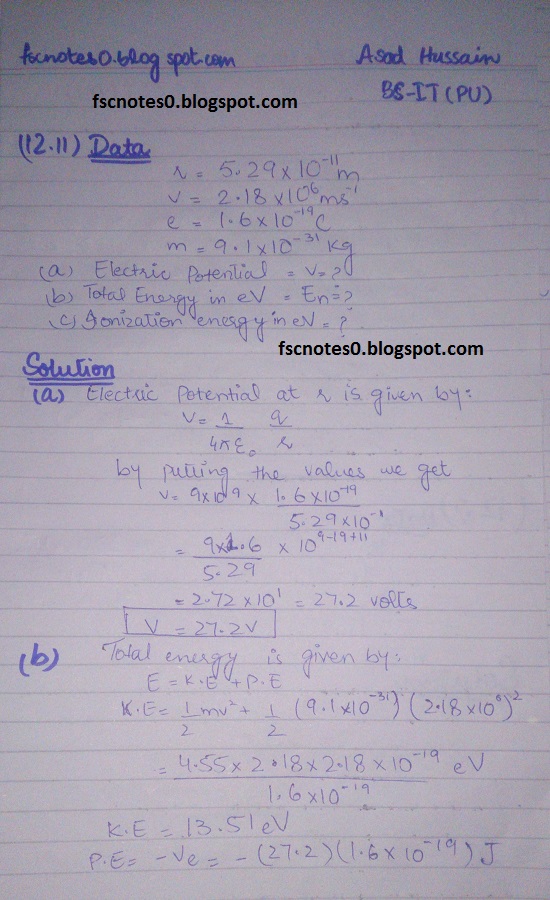 fscnotes0.blog spot.com Asad Hussain
fscnotes0.blogspot.com BS-IT (PU)
(12.11) Data
r = 5.29 x 10⁻¹¹ m
v = 2.18 x 10⁶ ms⁻¹
e = 1.6 x 10⁻¹⁹ C
m = 9.1 x 10⁻³¹ kg
(a) Electric Potential = V = ?
(b) Total Energy in eV = En = ?
(c) Ionization energy in eV = ?
fscnotes0.blogspot.com
Solution
(a) Electric Potential at r is given by:
V = 1 q
4πε₀ r
by putting the values we get
V = 9x10⁹ x 1.6 x 10⁻¹⁹
5.29 x 10⁻¹
= 9x1.6 x 10⁹⁻¹⁹⁺¹¹
5.29
= 2.72 x 10¹ = 27.2 volts
V = 27.2V
(b) Total energy is given by:
E = K.E + P.E
K.E = 1 mv² + 1 (9.1x10⁻³¹) (2.18 x 10⁶)²
2 2
= 4.55 x 2.18 x 2.18 x 10⁻¹⁹ eV
1.6 x 10⁻¹⁹
K.E = 13.51 eV
P.E = -Ve = - (27.2) (1.6 x 10⁻¹⁹) J